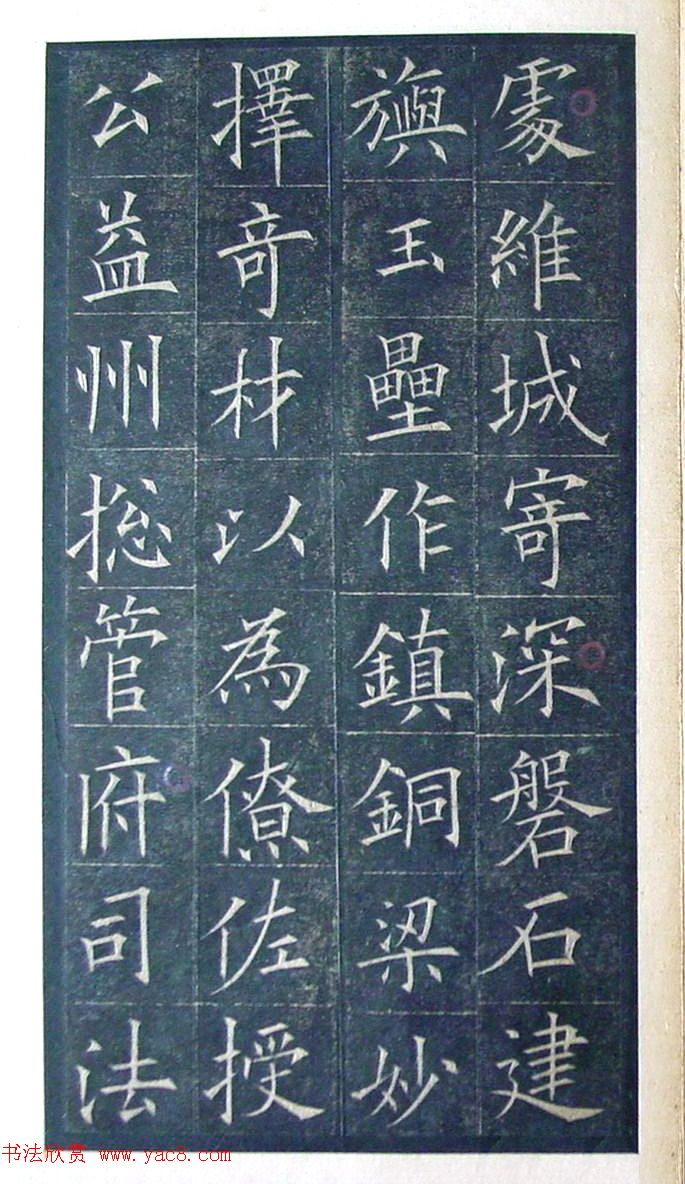 處維城寄深磐石建
旟玉壘作鎮銅梁妙
擇奇材以為僚佐授
公益州捴管府司法
书法欣赏 www.yac8.com